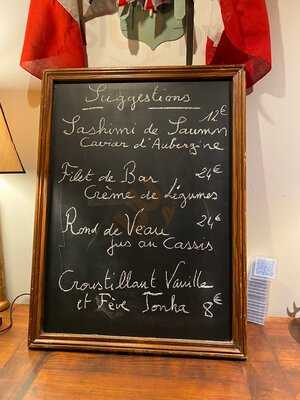 Suggestions
Sashimi de Saumon 12€
Caviar d'Aubergine
Filet de Bar 24€
Crème de Légumes
Rond de Veau 24€
jus au Cassis
Croustillant Vanille
et Fève Tonka 8€